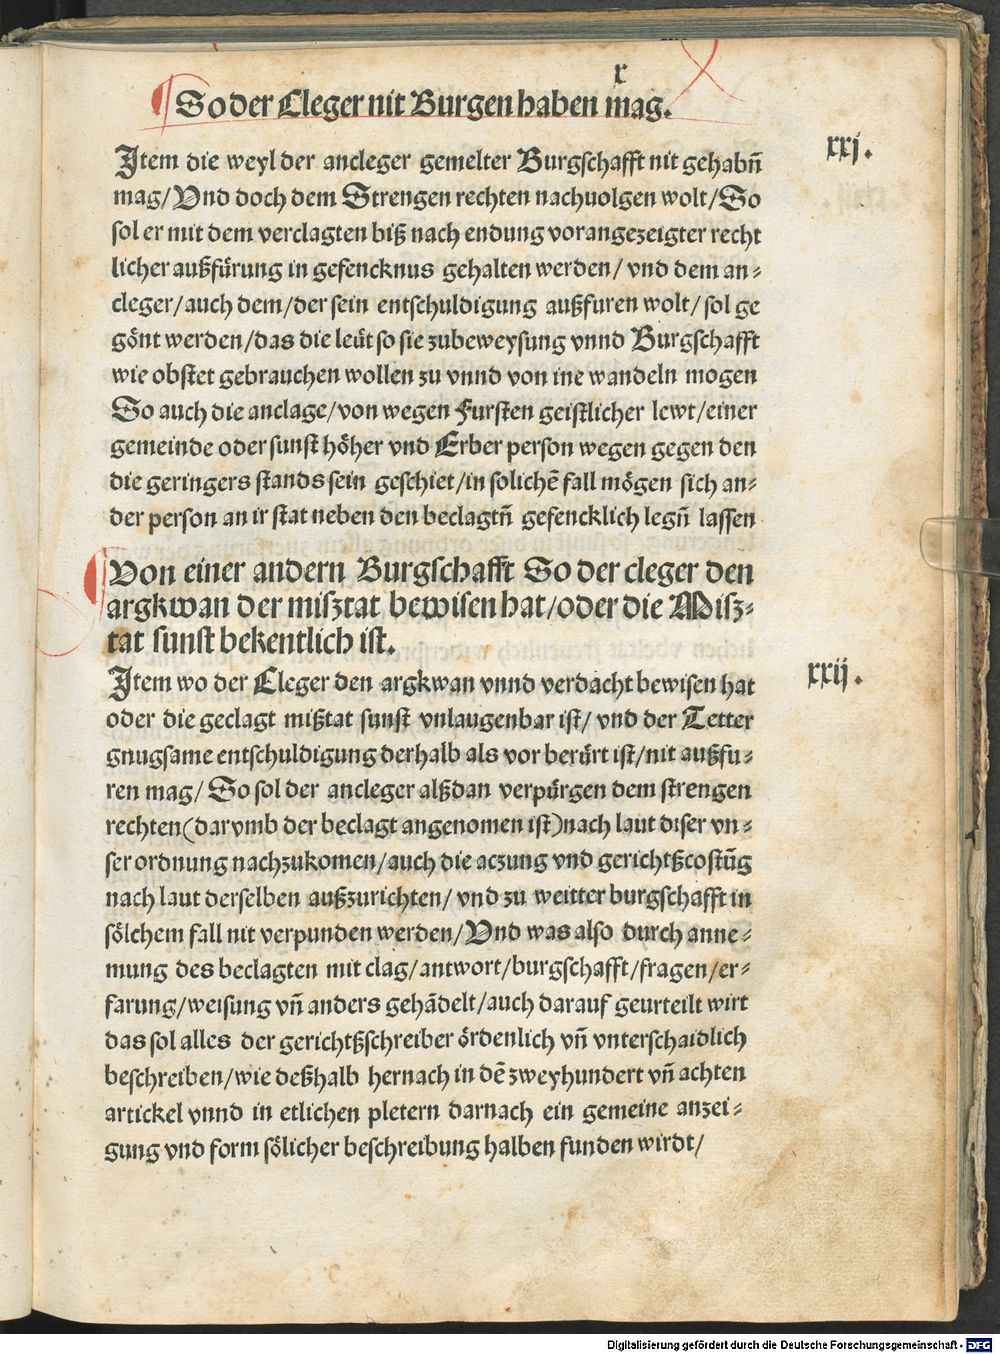 x
So der Cleger nit Burgen haben mag.
xxj.
Jtem die weyl der ancleger gemelter Burgschafft nit gehabñ
mag/Vnd doch dem Strengen rechten nachuolgen wolt/So
sol er mit dem verclagten biß nach endung vorangezeigter recht
licher außfürung in gefencknus gehalten werden/ vnd dem an⸗
cleger/auch dem/der sein entschuldigung außfuren wolt/sol ge
gönt werden/das die leüt so sie zubeweysung vnnd Burgschafft
wie obstet gebrauchen wollen zu vnnd von ine wandeln mogen
So auch die anclage/von wegen Fursten geistlicher lewt/einer
gemeinde oder sunst höher vnd Erber person wegen gegen den
die geringers stands sein geschiet/in solichē fall mögen sich an⸗
der person an ir stat neben den beclagtñ gefencklich legñ lassen
Von einer andern Burgschafft So der cleger den
argkwan der miſztat bewisen hat/oder die Miſz⸗
tat sunst bekentlich ist.
xxij.
Jtem wo der Cleger den argkwan vnnd verdacht bewisen hat
oder die geclagt mißtat sunst vnlaugenbar ist/ vnd der Tetter
gnugsame entschuldigung derhalb als vor berürt ist/nit außfu⸗
ren mag/ So sol der ancleger alßdan verpürgen dem strengen
rechten(darvmb der beclagt angenomen ist)nach laut diser vn⸗
ser ordnung nachzukomen/auch die aczung vnd gerichtßcostūg
nach laut derselben außzurichten/ vnd zu weitter burgschafft in
sölchem fall nit verpunden werden/Vnd was also durch anne⸗
mung des beclagten mit clag/antwort/burgschafft/fragen/er⸗
farung/weisung vñ anders gehādelt/auch darauf geurteilt wirt
das sol alles der gerichtßschreiber ördenlich vñ vnterschaidlich
beschreiben/wie deßhalb hernach in dē zweyhundert vñ achten
artickel vnnd in etlichen pletern darnach ein gemeine anzei⸗
gung vnd form sölicher beschreibung halben funden wirdt/
Digitalisierung gefördert durch die Deutsche Forschungsgemeinschaft - DFG